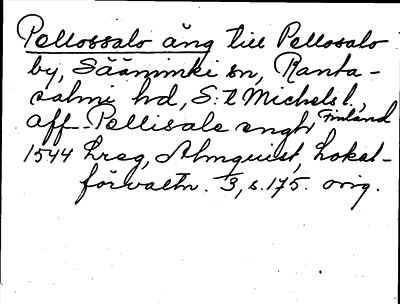 Pellossalo äng till Pellosalo
by, Sääminki sn, Ranta-
salmi hd, S:t Michels l.,
Finland
aff Pellisale engh
1544 Lreg, Almquist, Lokal-
förvaltn. 3, s. 175. orig.